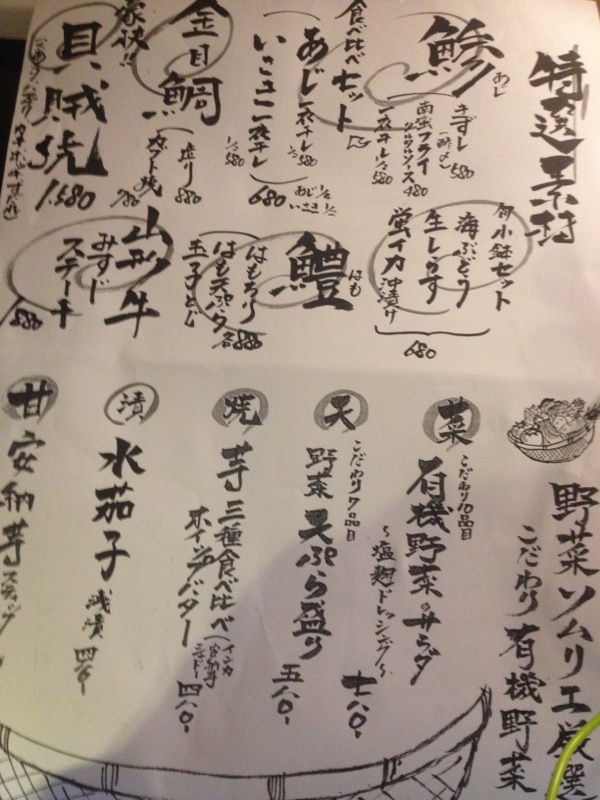 特選素材
旬小鉢セット
海ぶどう
生しらす
蛍イカ沖漬け
680
鯵
あじ
きずし(酢〆)580
南蛮フライ
タルタルソース 480
一夜干し 1/2 580
食べ比べセット
あじ一夜干し 1/2 580
いさき一夜干し 1/2 580
680
あじ 1/2
いさき 1/2
鱧
はも
はもちり
はも天ぷら
玉子とじ
各880
金目鯛
造り 880
カブト焼 780
山形牛
みすじ
ステーキ
1,880
豪快!!
貝賊焼
1,580
野菜ソムリエ厳選
こだわり有機野菜
菜
こだわり10品目
有機野菜のサラダ
〜塩麹ドレッシング〜
七八〇-
天
こだわり7品目
野菜天ぷら盛り
五八〇-
焼
芋三種食べ比べ
ホイップバター
四八〇-
漬
水茄子
浅漬
甘
安納芋
スティック